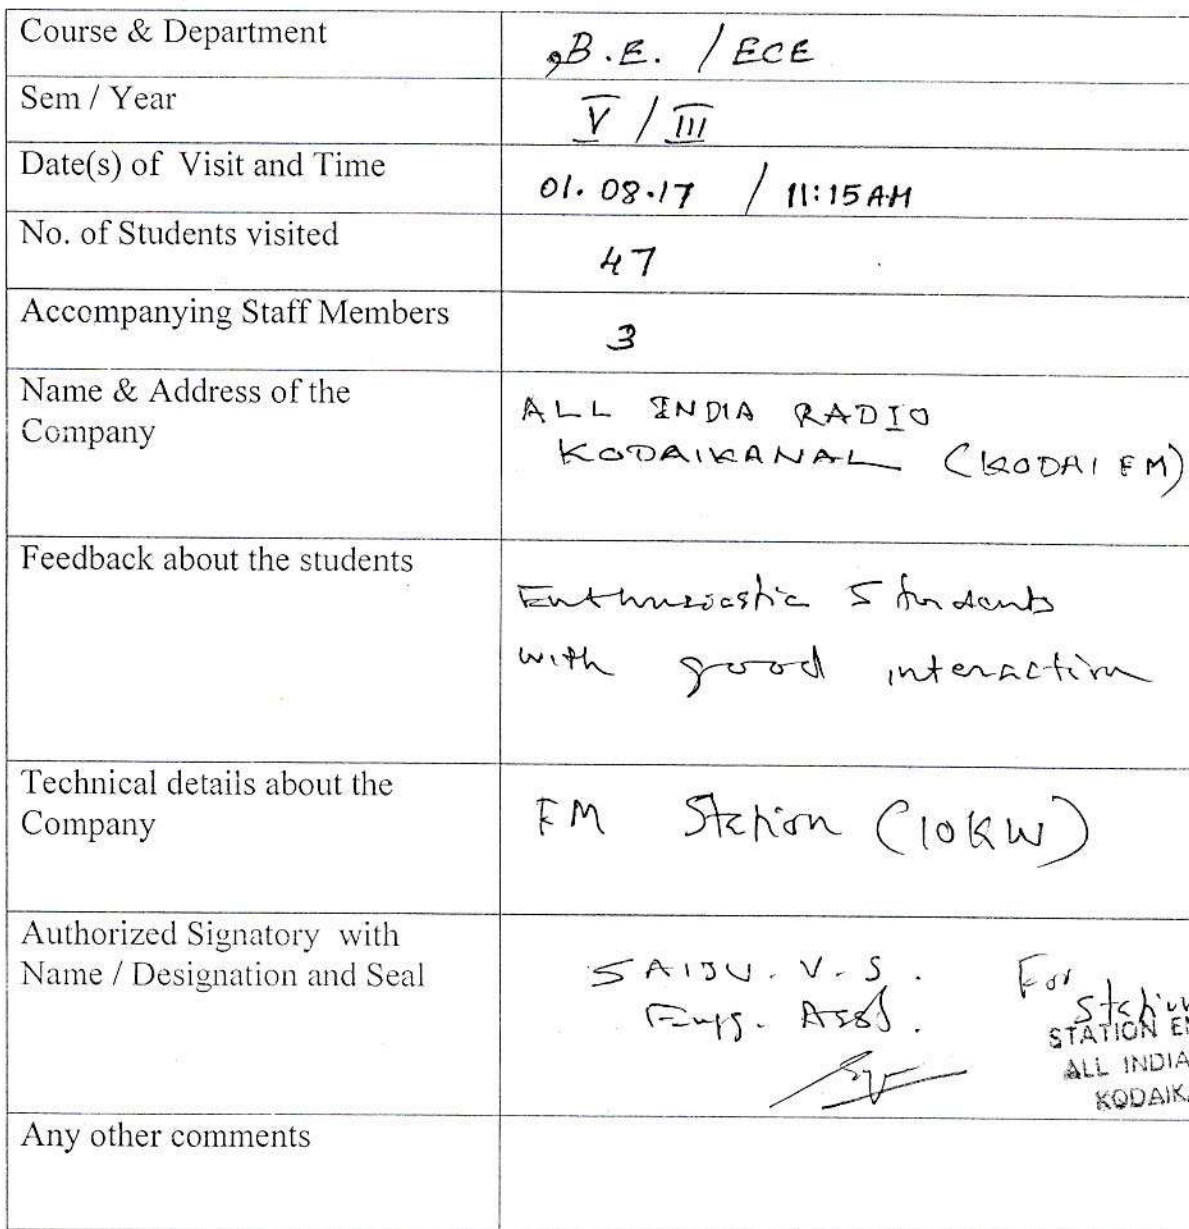 Course & Department
B.E. / ECE
Sem / Year
V / III
Date(s) of Visit and Time
01.08.17 / 11:15AM
No. of Students visited
47
Accompanying Staff Members
3
Name & Address of the
Company
ALL INDIA RADIO
KODAIKANAL (KODAI FM)
Feedback about the students
Enthusiastic Students
with good interaction
Technical details about the
Company
FM Station (10KW)
Authorized Signatory with
Name / Designation and Seal
SAIJU. V. S.
Engg. Asst.
For
STATION
ALL INDIA
KODAIK
Any other comments